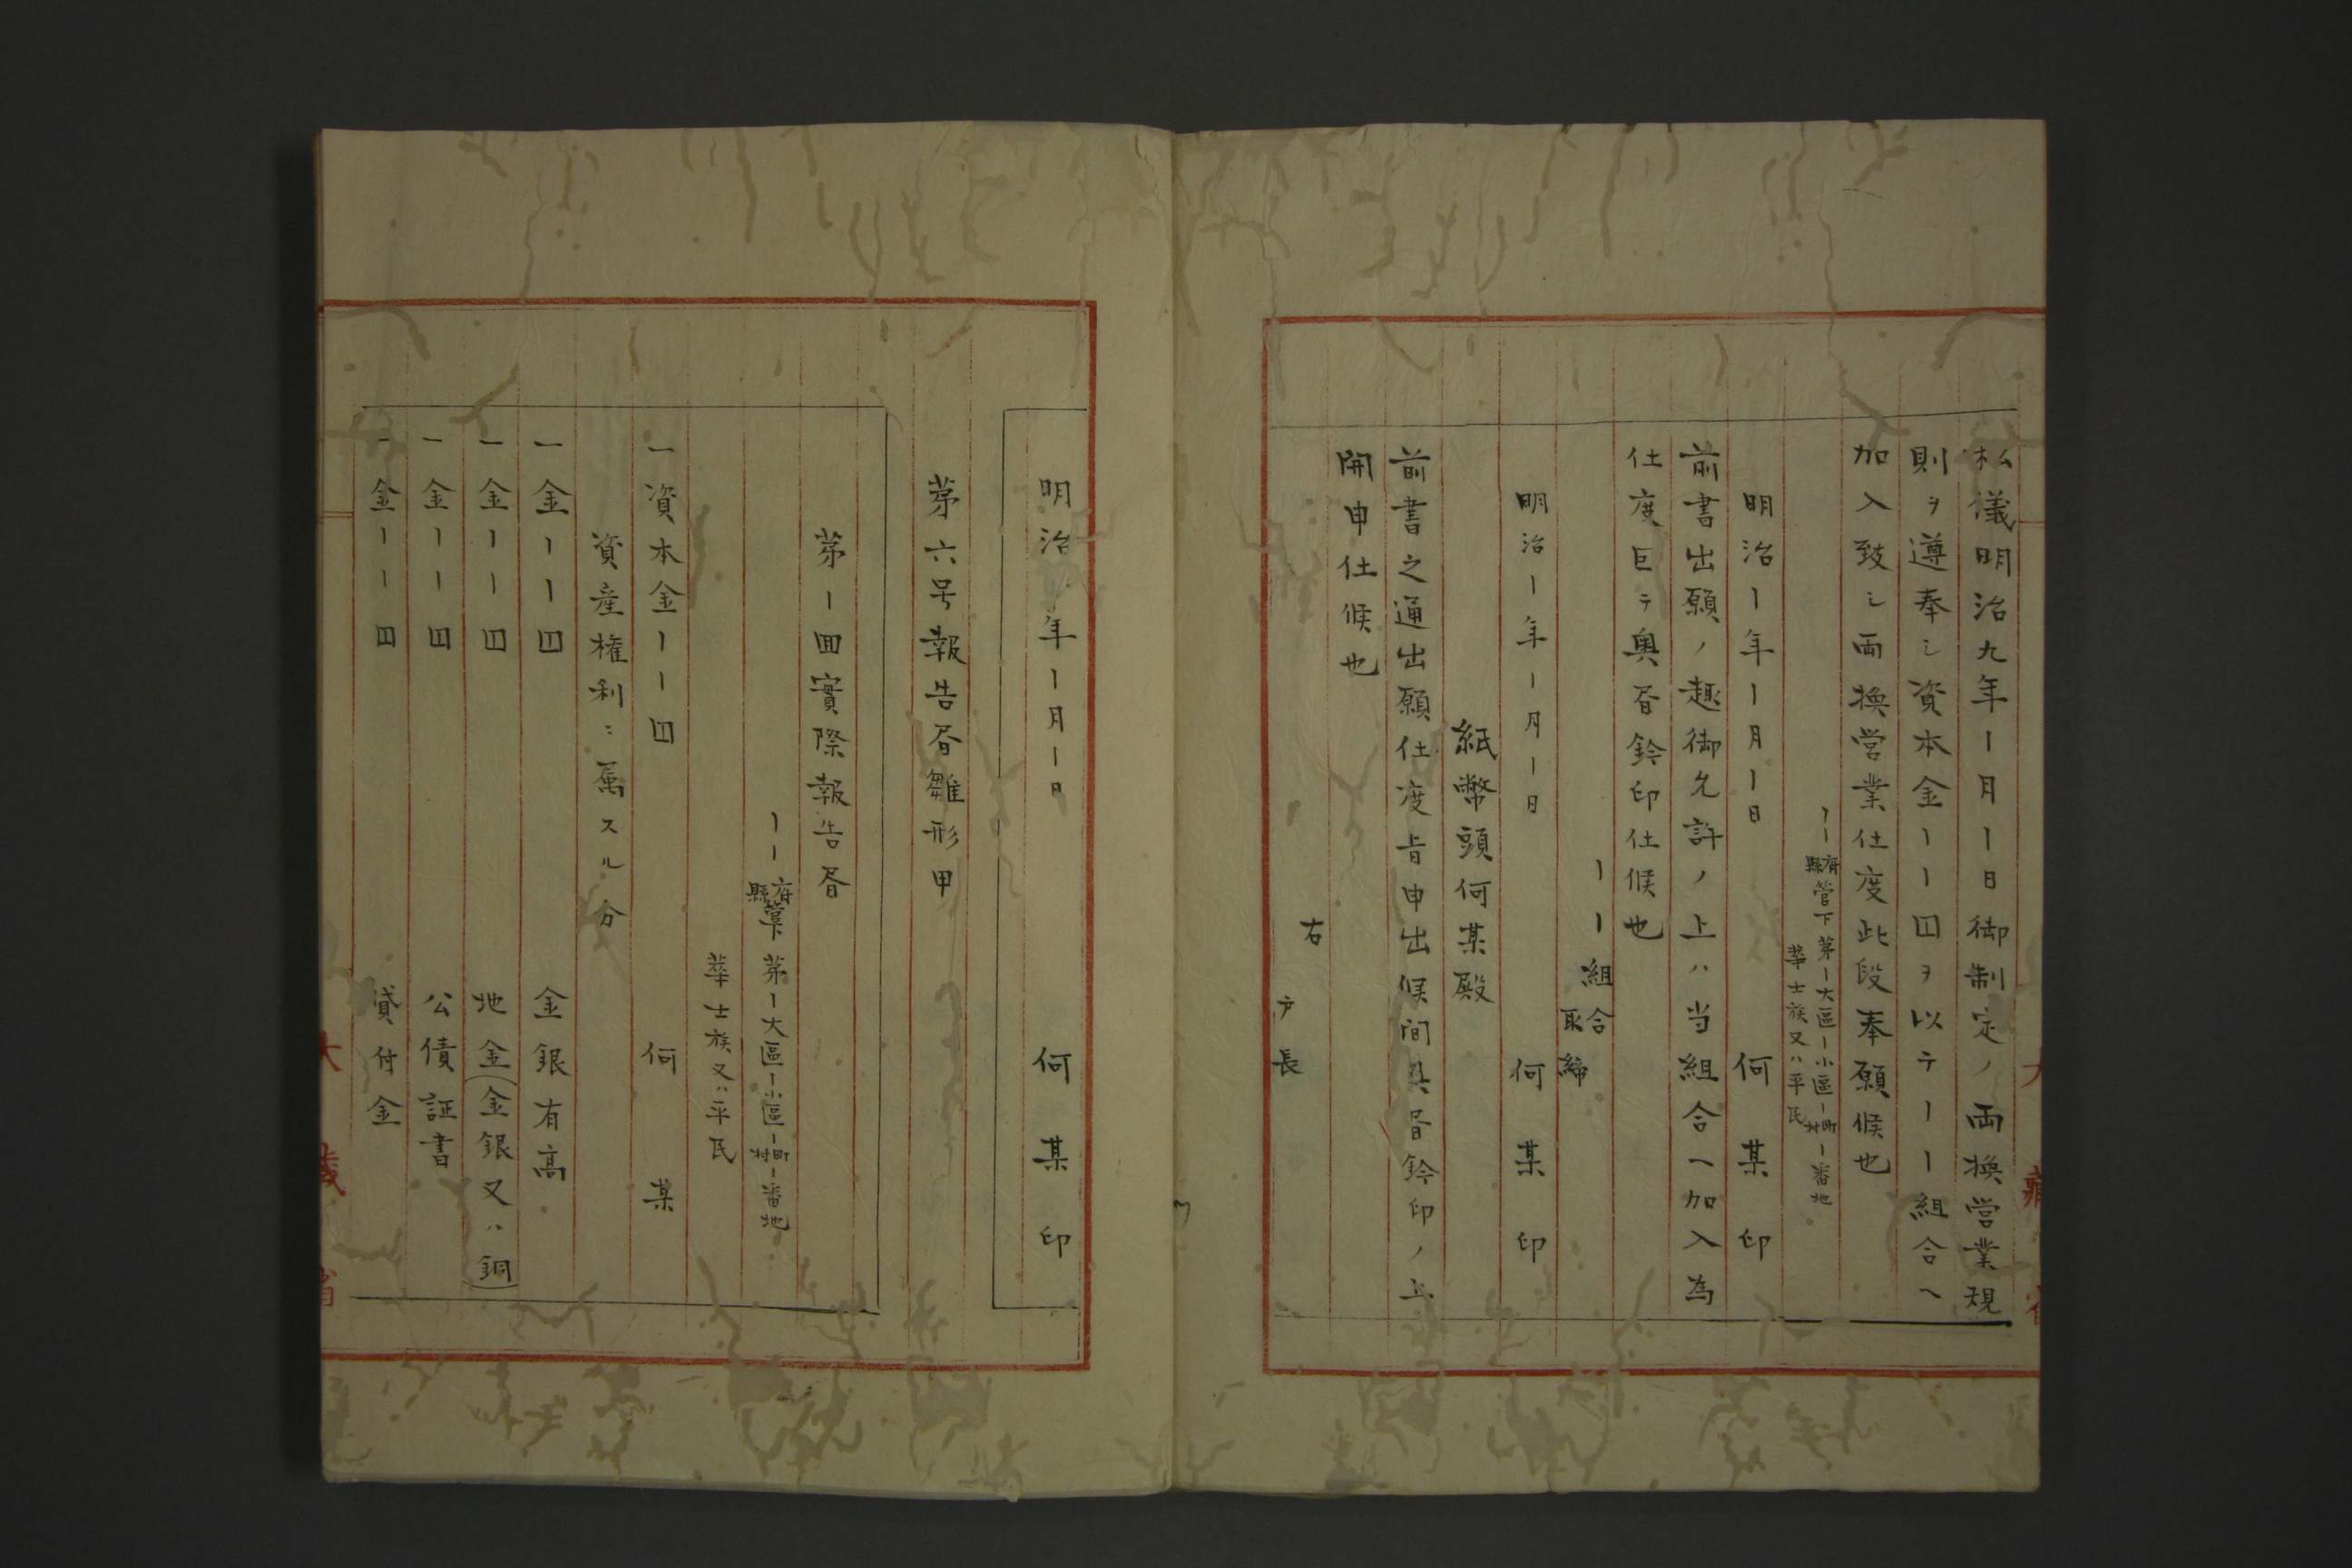 私儀明治九年ー月ー日御制定ノ両換営業規
則ヲ遵奉シ資本金ーー円ヲ以テーー組合ヘ
加入致シ両換営業仕度此段奉願候也
ーー府縣管下第ー大區ー小區ー町村ー番地
華士族又ハ平民
明治ー年ー月ー日 何某印
前書出願ノ趣御允許ノ上ハ当組合ヘ加入為
仕度因テ奥書鈐印仕候也
ーー組合
取締
明治ー年ー月ー日 何某印
紙幣頭何某殿
前書之通出願仕度旨申出候間具書鈐印ノ上
開申仕候也
右
戸長
大藏省
明治 年ー月ー日 何某印
第六号報告書雛形甲
第ー囬實際報告書
ーー府縣管下第ー大區ー小區ー町村ー番地
華士族又ハ平民
一資本金ーー円 何某
資産権利ニ属スル分
一金ーー円 金銀有高
一金ーー円 地金(金銀又ハ銅)
一金ーー円 公債証書
一金ーー円 貸付金
大藏省